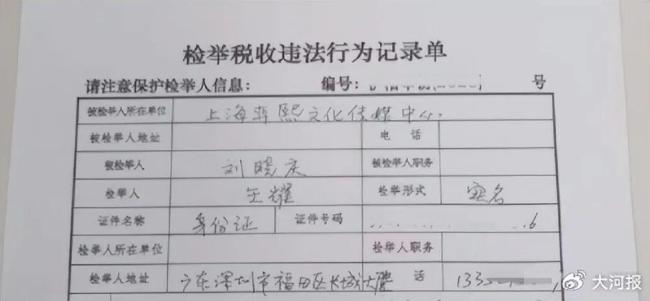 检举税收违法行为记录单
请注意保护检举人信息: 编号: 号
被检举人所在单位 上海 熙文化传媒中心
被检举人地址 电 话
被检举人 刘晓庆 被检举人职务
检举人 王耀 检举形式 实名
证件名称 身份证 证件号码 6
检举人所在单位 检举人职务
检举人地址 广东深圳市福田区长城大厦 话 133
大河报